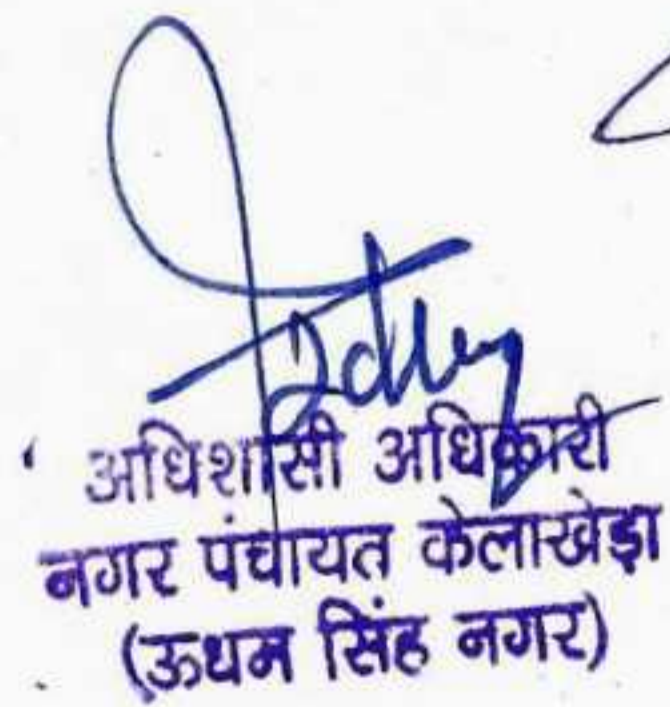 अधिशासी अधिकारी
नगर पंचायत केलाखेड़ा
(ऊधम सिंह नगर)